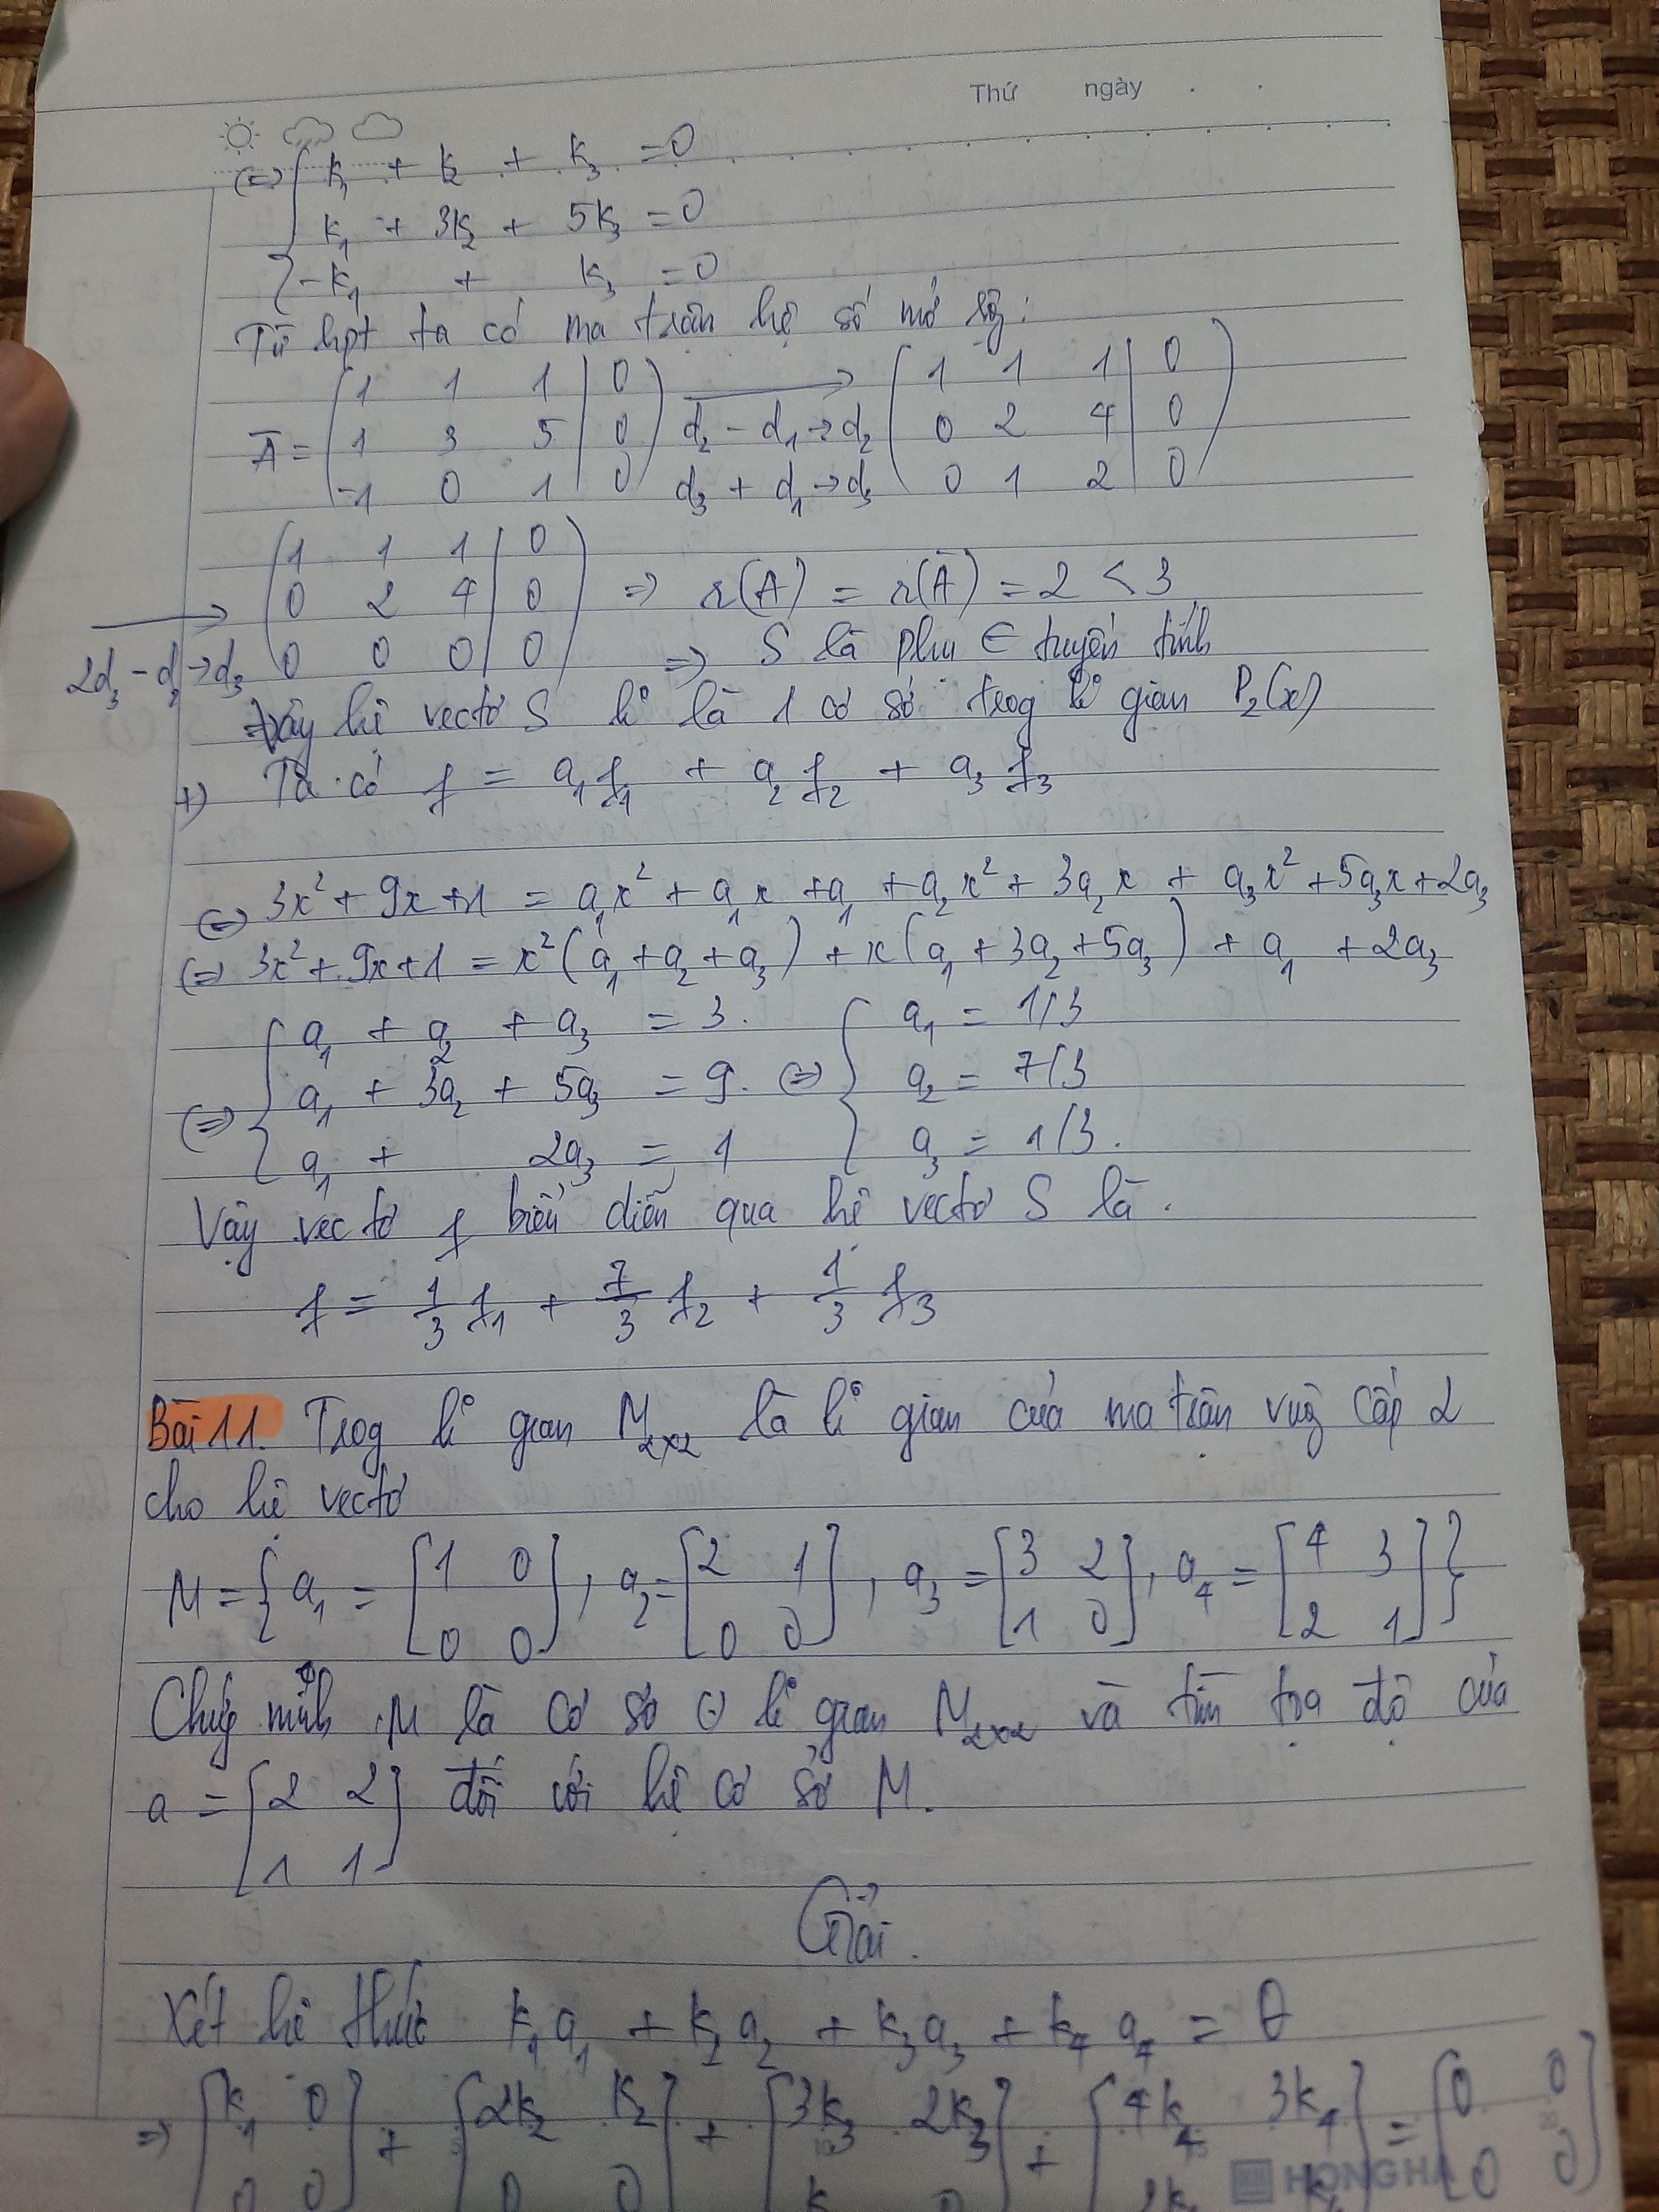 Thứ ngày
(=) { k₁ + k₂ + k₃ = 0
k₁ + 3k₂ + 5k₃ = 0
-k₁ + k₃ = 0
Từ hpt ta có ma trân hệ số mở rộg:
Ā = (1 1 1 | 0) → (1 1 1 | 0)
(1 3 5 | 0) d₂ - d₁ → d₂ (0 2 4 | 0)
(-1 0 1 | 0) d₃ + d₁ → d₃ (0 1 2 | 0)
→ (1 1 1 | 0)
(0 2 4 | 0) => r(A) = r(Ā) = 2 < 3
2d₃ - d₂ → d₃ (0 0 0 | 0) => S là phụ ∈ tuyến tính
Vậy hệ vectơ S k° là 1 cơ sở trog k° gian P₂(x)
+) Ta có f = a₁f₁ + a₂f₂ + a₃f₃
(=) 3x² + 9x + 1 = a₁x² + a₁x + a₁ + a₂x² + 3a₂x + a₃x² + 5a₃x + 2a₃
(=) 3x² + 9x + 1 = x²(a₁ + a₂ + a₃) + x(a₁ + 3a₂ + 5a₃) + a₁ + 2a₃
{ a₁ + a₂ + a₃ = 3. { a₁ = 1/3
(=) a₁ + 3a₂ + 5a₃ = 9. (=) a₂ = 7/3
a₁ + 2a₃ = 1 a₃ = 1/3.
Vậy vectơ f biểu diễn qua hệ vectơ S là.
f = 1/3 f₁ + 7/3 f₂ + 1/3 f₃
Bài 11. Trog k° gian M₂ₓ₂ là k° gian của ma trân vug cấp 2
cho hệ vectơ
M = { a₁ = [1 0; 0 0], a₂ = [2 1; 0 0], a₃ = [3 2; 1 0], a₄ = [4 3; 2 1] }
Chứg minh M là cơ sở k° gian M₂ₓ₂ và tìm tọa độ của
a = [2 2; 1 1] đối với hệ cơ sở M.
Giải.
Xét hệ thức k₁a₁ + k₂a₂ + k₃a₃ + k₄a₄ = θ
=> [k₁ 0; 0 0] + [2k₂ k₂; 0 0] + [3k₃ 2k₃; k 0] + [4k₄ 3k₄; 2k k₄] = [0 0; 0 0]
HONG HA